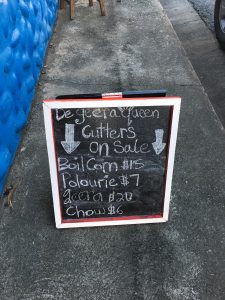 De geera Queen
Cutters
On Sale
Boil Corn $15
Polourie $7
geera $20
Chow $6